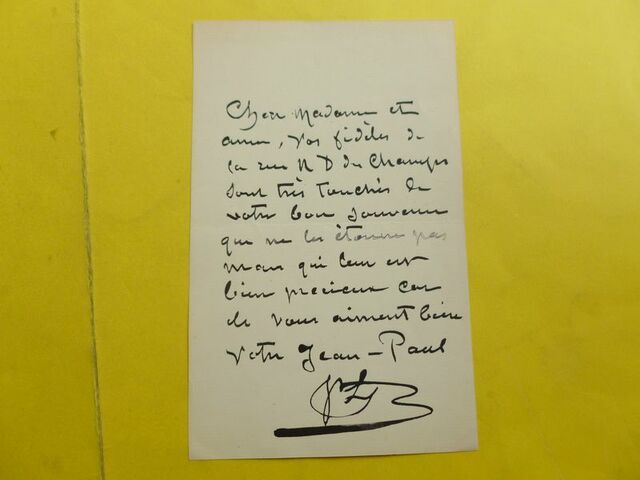 Chère Madame et
amie, vos fidèles de
la rue N D des Champs
sont très touchés de
votre bon souvenir
qui ne les étonne pas
mais qui leur est
bien précieux car
ils vous aiment bien
Votre Jean-Paul